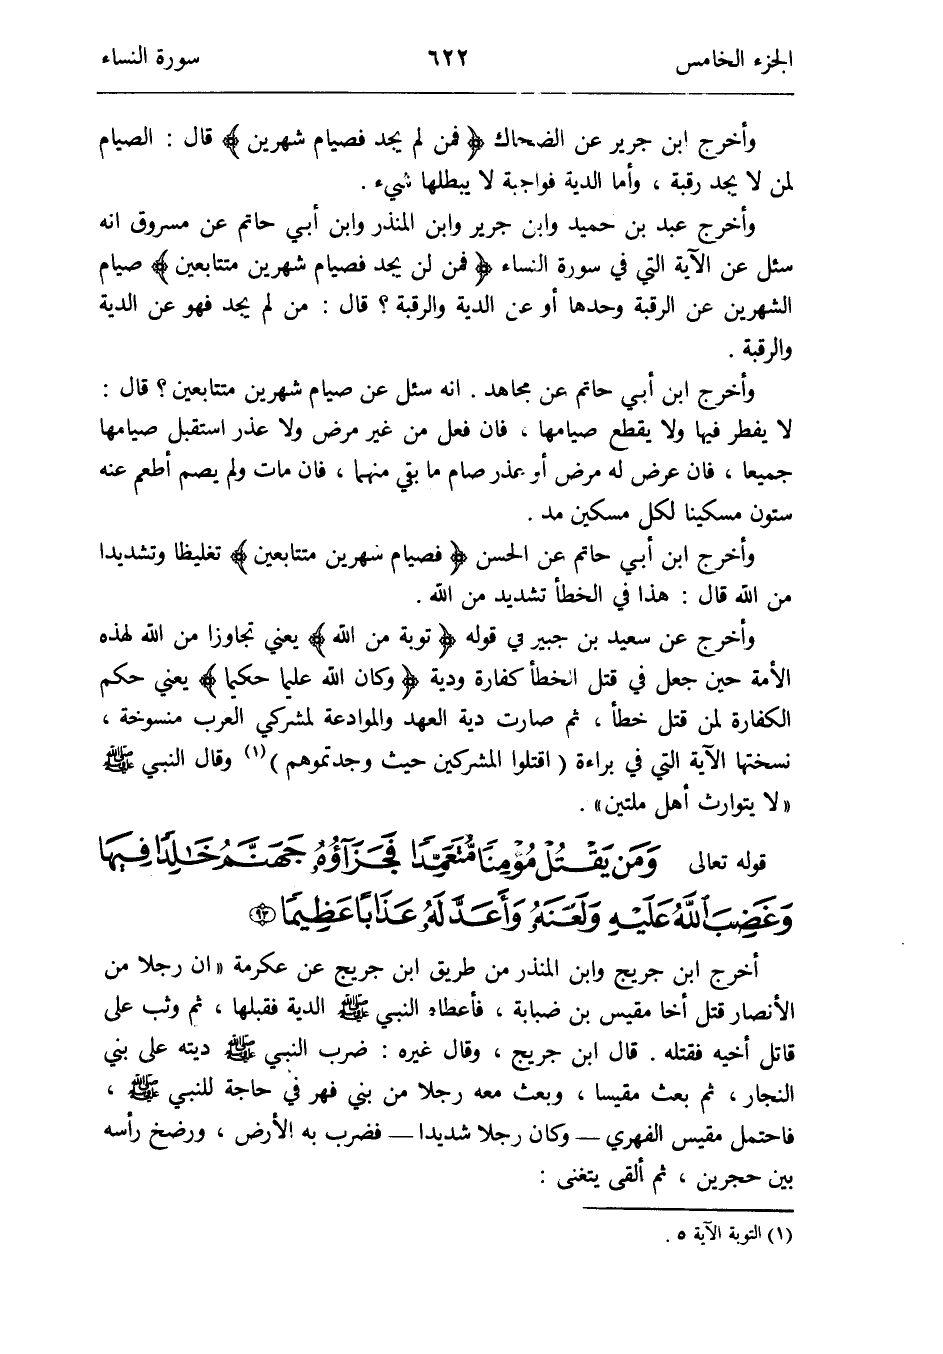 الجزء الخامس ٦٢٢ سورة النساء
وأخرج ابن جرير عن الضحاك ﴿ فمن لم يجد فصيام شهرين ﴾ قال : الصيام
لمن لا يجد رقبة ، وأما الدية فواجبة لا يبطلها شيء .
وأخرج عبد بن حميد وابن جرير وابن المنذر وابن أبي حاتم عن مسروق انه
سئل عن الآية التي في سورة النساء ﴿ فمن لن يجد فصيام شهرين متتابعين ﴾ صيام
الشهرين عن الرقبة وحدها أو عن الدية والرقبة ؟ قال : من لم يجد فهو عن الدية
والرقبة .
وأخرج ابن أبي حاتم عن مجاهد . انه سئل عن صيام شهرين متتابعين ؟ قال :
لا يفطر فيها ولا يقطع صيامها ، فان فعل من غير مرض ولا عذر استقبل صيامها
جميعا ، فان عرض له مرض أو عذر صام ما بقي منهما ، فان مات ولم يصم أطعم عنه
ستون مسكينا لكل مسكين مد .
وأخرج ابن أبي حاتم عن الحسن ﴿ فصيام شهرين متتابعين ﴾ تغليظا وتشديدا
من الله قال : هذا في الخطأ تشديد من الله .
وأخرج عن سعيد بن جبير في قوله ﴿ توبة من الله ﴾ يعني تجاوزا من الله لهذه
الأمة حين جعل في قتل الخطأ كفارة ودية ﴿ وكان الله عليما حكيما ﴾ يعني حكم
الكفارة لمن قتل خطأ ، ثم صارت دية العهد والموادعة لمشركي العرب منسوخة ،
نسختها الآية التي في براءة ( اقتلوا المشركين حيث وجدتموهم )(١) وقال النبي ﷺ
«لا يتوارث أهل ملتين» .
قوله تعالى وَمَن يَقْتُلْ مُؤْمِنًا مُّتَعَمِّدًا فَجَزَآؤُهُۥ جَهَنَّمُ خَٰلِدًا فِيهَا
وَغَضِبَ ٱللَّهُ عَلَيْهِ وَلَعَنَهُۥ وَأَعَدَّ لَهُۥ عَذَابًا عَظِيمًا ۝٩٣
أخرج ابن جريج وابن المنذر من طريق ابن جريج عن عكرمة «ان رجلا من
الأنصار قتل أخا مقيس بن ضبابة ، فأعطاه النبي ﷺ الدية فقبلها ، ثم وثب على
قاتل أخيه فقتله . قال ابن جريج ، وقال غيره : ضرب النبي ﷺ ديته على بني
النجار ، ثم بعث مقيسا ، وبعث معه رجلا من بني فهر في حاجة للنبي ﷺ ،
فاحتمل مقيس الفهري — وكان رجلا شديدا — فضرب به الأرض ، ورضخ رأسه
بين حجرين ، ثم ألقى يتغنى :
(١) التوبة الآية ٥ .